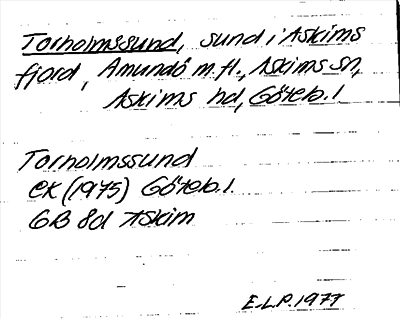 Torholmssund, sund i Askims
fjord, Amundö m.fl., Askims sn,
Askims hd, Göteb. l
Torholmssund
EK (1975) Göteb. l.
6B 8d Askim
E.L.P. 1977